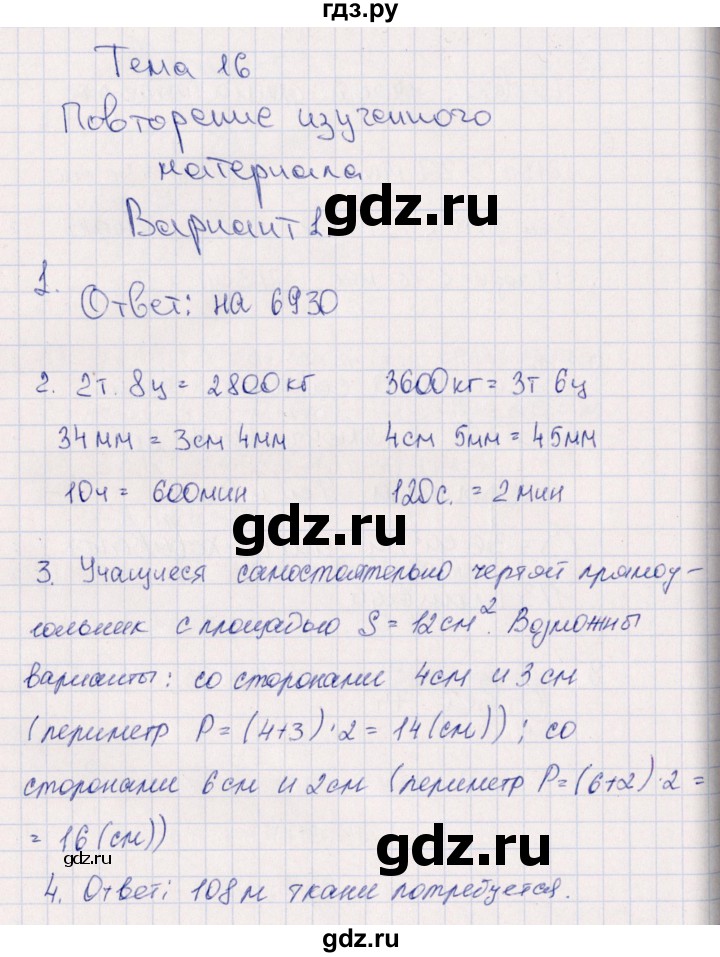 гдз.ру
Тема 16
Повторение изученного
материала
gdz.ru
Вариант 1
1.
Ответ: на 6930
2. 2т. 8ц = 2800кг 3600кг = 3т 6ц
34мм = 3см 4мм 4см 5мм = 45мм
10ч = 600мин 120с. = 2мин
gdz.ru
3. Учащиеся самостоятельно чертят прямоу-
гольник с площадью S = 12см². Возможны
варианты: со сторонами 4см и 3см
(периметр P = (4+3)·2 = 14(см)); со
сторонами 6см и 2см (периметр P=(6+2)·2 =
= 16(см))
gdz.ru
gdz.ru
4. Ответ: 108м ткани потребуется.
gdz.ru